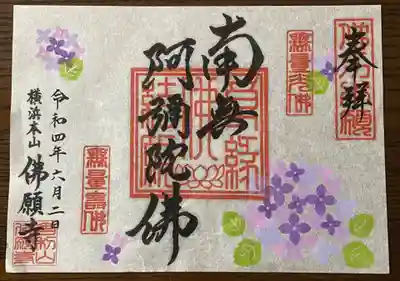 奉拝
南無
阿彌陀佛
令和四年六月二日
横浜本山
佛願寺
無量光佛
無量壽佛